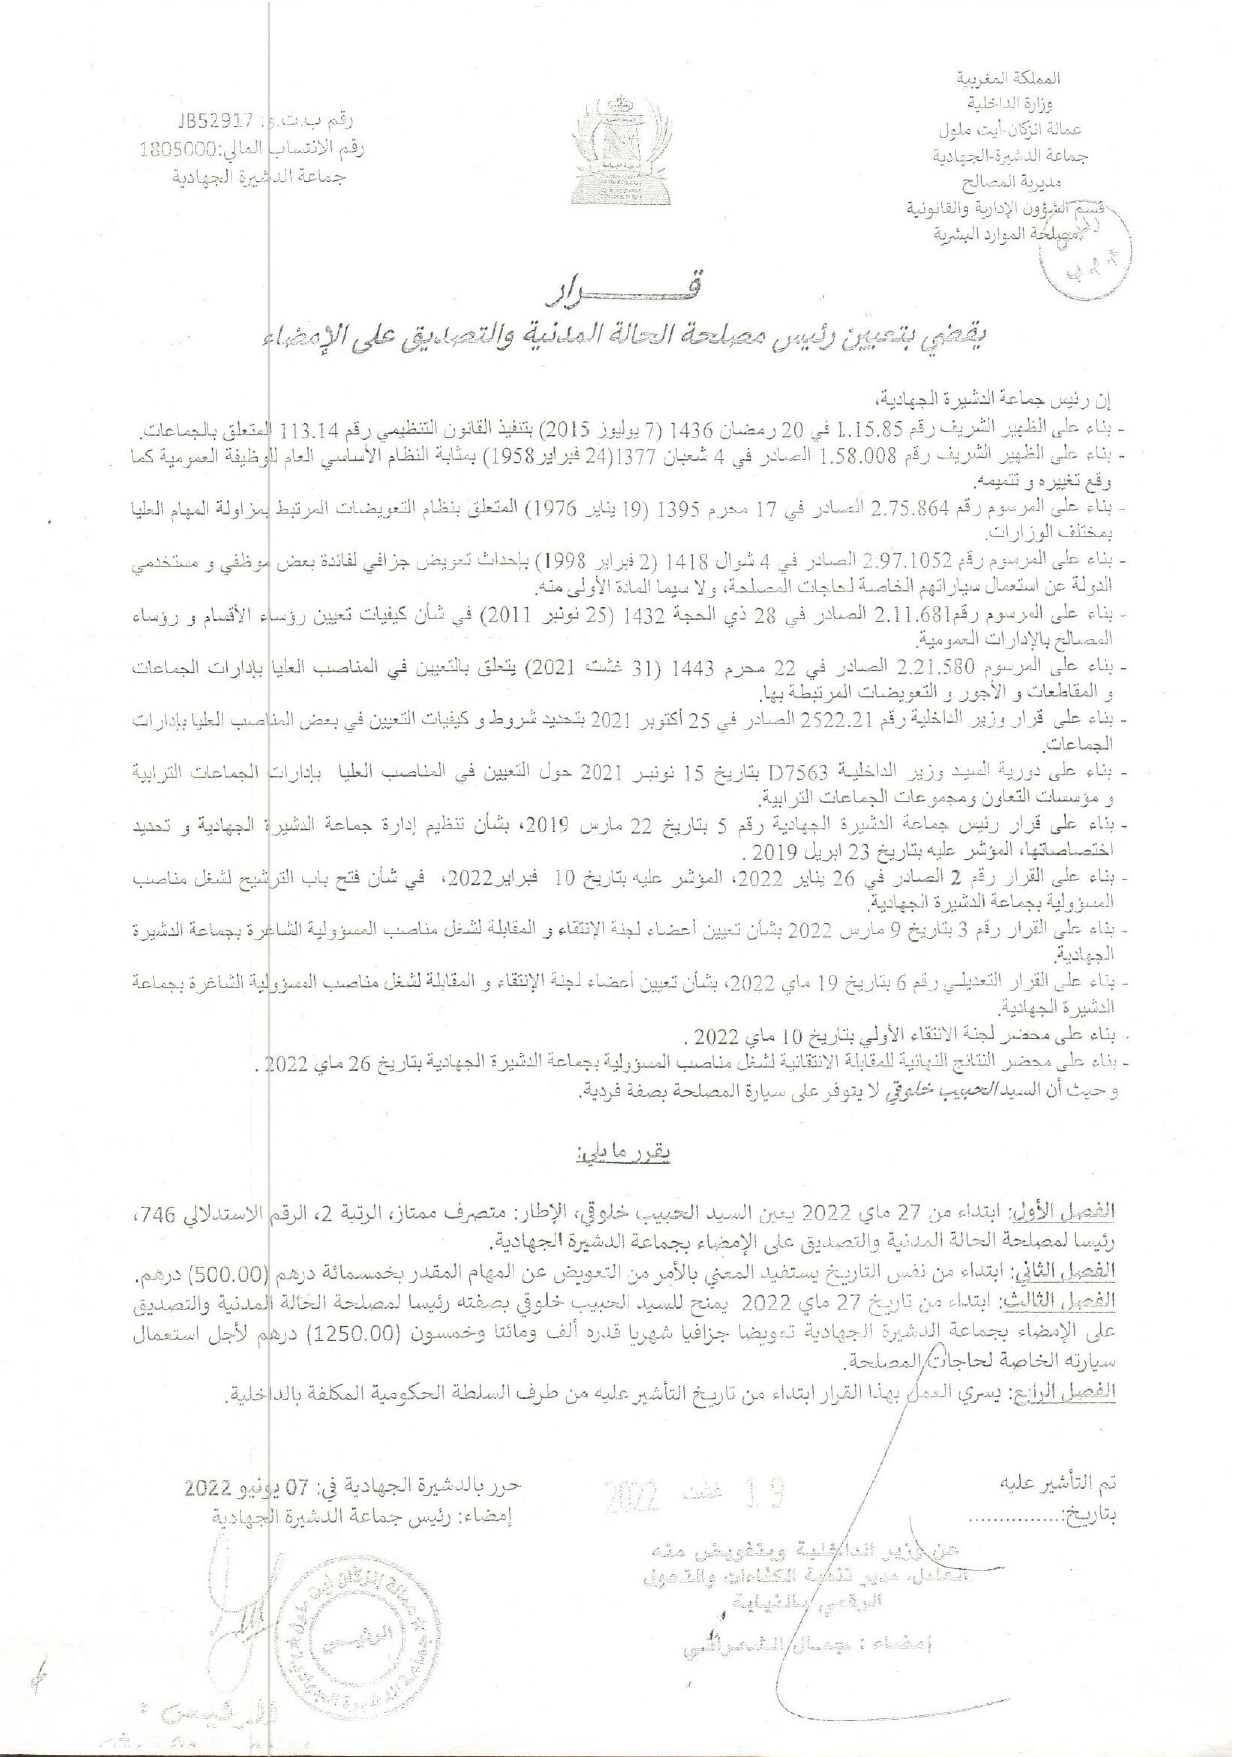 المملكة المغربية
وزارة الداخلية
عمالة انزكان-أيت ملول
جماعة الدشيرة-الجهادية
مديرية المصالح
قسم الشؤون الإدارية والقانونية
مصلحة الموارد البشرية
رقم ب.ت.و: JB52917
رقم الانتساب المالي:1805000
جماعة الدشيرة الجهادية
قـــرار
يقضي بتعيين رئيس مصلحة الحالة المدنية والتصديق على الإمضاء
إن رئيس جماعة الدشيرة الجهادية،
- بناء على الظهير الشريف رقم 1.15.85 في 20 رمضان 1436 (7 يوليوز 2015) بتنفيذ القانون التنظيمي رقم 113.14 المتعلق بالجماعات.
- بناء على الظهير الشريف رقم 1.58.008 الصادر في 4 شعبان 1377(24 فبراير1958) بمثابة النظام الأساسي العام للوظيفة العمومية كما
وقع تغييره و تتميمه.
- بناء على المرسوم رقم 2.75.864 الصادر في 17 محرم 1395 (19 يناير 1976) المتعلق بنظام التعويضات المرتبط بمزاولة المهام العليا
بمختلف الوزارات.
- بناء على المرسوم رقم 2.97.1052 الصادر في 4 شوال 1418 (2 فبراير 1998) بإحداث تعويض جزافي لفائدة بعض موظفي و مستخدمي
الدولة عن استعمال سياراتهم الخاصة لحاجات المصلحة، ولا سيما المادة الأولى منه.
- بناء على المرسوم رقم2.11.681 الصادر في 28 ذي الحجة 1432 (25 نونبر 2011) في شأن كيفيات تعيين رؤساء الأقسام و رؤساء
المصالح بالإدارات العمومية.
- بناء على المرسوم 2.21.580 الصادر في 22 محرم 1443 (31 غشت 2021) يتعلق بالتعيين في المناصب العليا بإدارات الجماعات
و المقاطعات و الأجور و التعويضات المرتبطة بها.
- بناء على قرار وزير الداخلية رقم 2522.21 الصادر في 25 أكتوبر 2021 بتحديد شروط و كيفيات التعيين في بعض المناصب العليا بإدارات
الجماعات.
- بناء على دورية السيد وزير الداخلية D7563 بتاريخ 15 نونبر 2021 حول التعيين في المناصب العليا بإدارات الجماعات الترابية
و مؤسسات التعاون ومجموعات الجماعات الترابية.
- بناء على قرار رئيس جماعة الدشيرة الجهادية رقم 5 بتاريخ 22 مارس 2019، بشأن تنظيم إدارة جماعة الدشيرة الجهادية و تحديد
اختصاصاتها، المؤشر عليه بتاريخ 23 ابريل 2019 .
- بناء على القرار رقم 2 الصادر في 26 يناير 2022، المؤشر عليه بتاريخ 10 فبراير2022، في شأن فتح باب الترشيح لشغل مناصب
المسؤولية بجماعة الدشيرة الجهادية.
- بناء على القرار رقم 3 بتاريخ 9 مارس 2022 بشأن تعيين أعضاء لجنة الإنتقاء و المقابلة لشغل مناصب المسؤولية الشاغرة بجماعة الدشيرة
الجهادية.
- بناء على القرار التعديلي رقم 6 بتاريخ 19 ماي 2022، بشأن تعيين أعضاء لجنة الإنتقاء و المقابلة لشغل مناصب المسؤولية الشاغرة بجماعة
الدشيرة الجهادية.
- بناء على محضر لجنة الانتقاء الأولي بتاريخ 10 ماي 2022 .
- بناء على محضر النتائج النهائية للمقابلة الانتقائية لشغل مناصب المسؤولية بجماعة الدشيرة الجهادية بتاريخ 26 ماي 2022 .
و حيث أن السيد الحبيب خلوقي لا يتوفر على سيارة المصلحة بصفة فردية.
يقرر ما يلي:
الفصل الأول: ابتداء من 27 ماي 2022 يعين السيد الحبيب خلوقي، الإطار: متصرف ممتاز، الرتبة 2، الرقم الاستدلالي 746،
رئيسا لمصلحة الحالة المدنية والتصديق على الإمضاء بجماعة الدشيرة الجهادية.
الفصل الثاني: ابتداء من نفس التاريخ يستفيد المعني بالأمر من التعويض عن المهام المقدر بخمسمائة درهم (500.00) درهم.
الفصل الثالث: ابتداء من تاريخ 27 ماي 2022 يمنح للسيد الحبيب خلوقي بصفته رئيسا لمصلحة الحالة المدنية والتصديق
على الإمضاء بجماعة الدشيرة الجهادية تعويضا جزافيا شهريا قدره ألف ومائتا وخمسون (1250.00) درهم لأجل استعمال
سيارته الخاصة لحاجات المصلحة.
الفصل الرابع: يسري العمل بهذا القرار ابتداء من تاريخ التأشير عليه من طرف السلطة الحكومية المكلفة بالداخلية.
تم التأشير عليه
بتاريخ:...............
19 غشت 2022
حرر بالدشيرة الجهادية في: 07 يونيو 2022
إمضاء: رئيس جماعة الدشيرة الجهادية
عن وزير الداخلية وبتفويض منه
الرئيس
الرئيس :